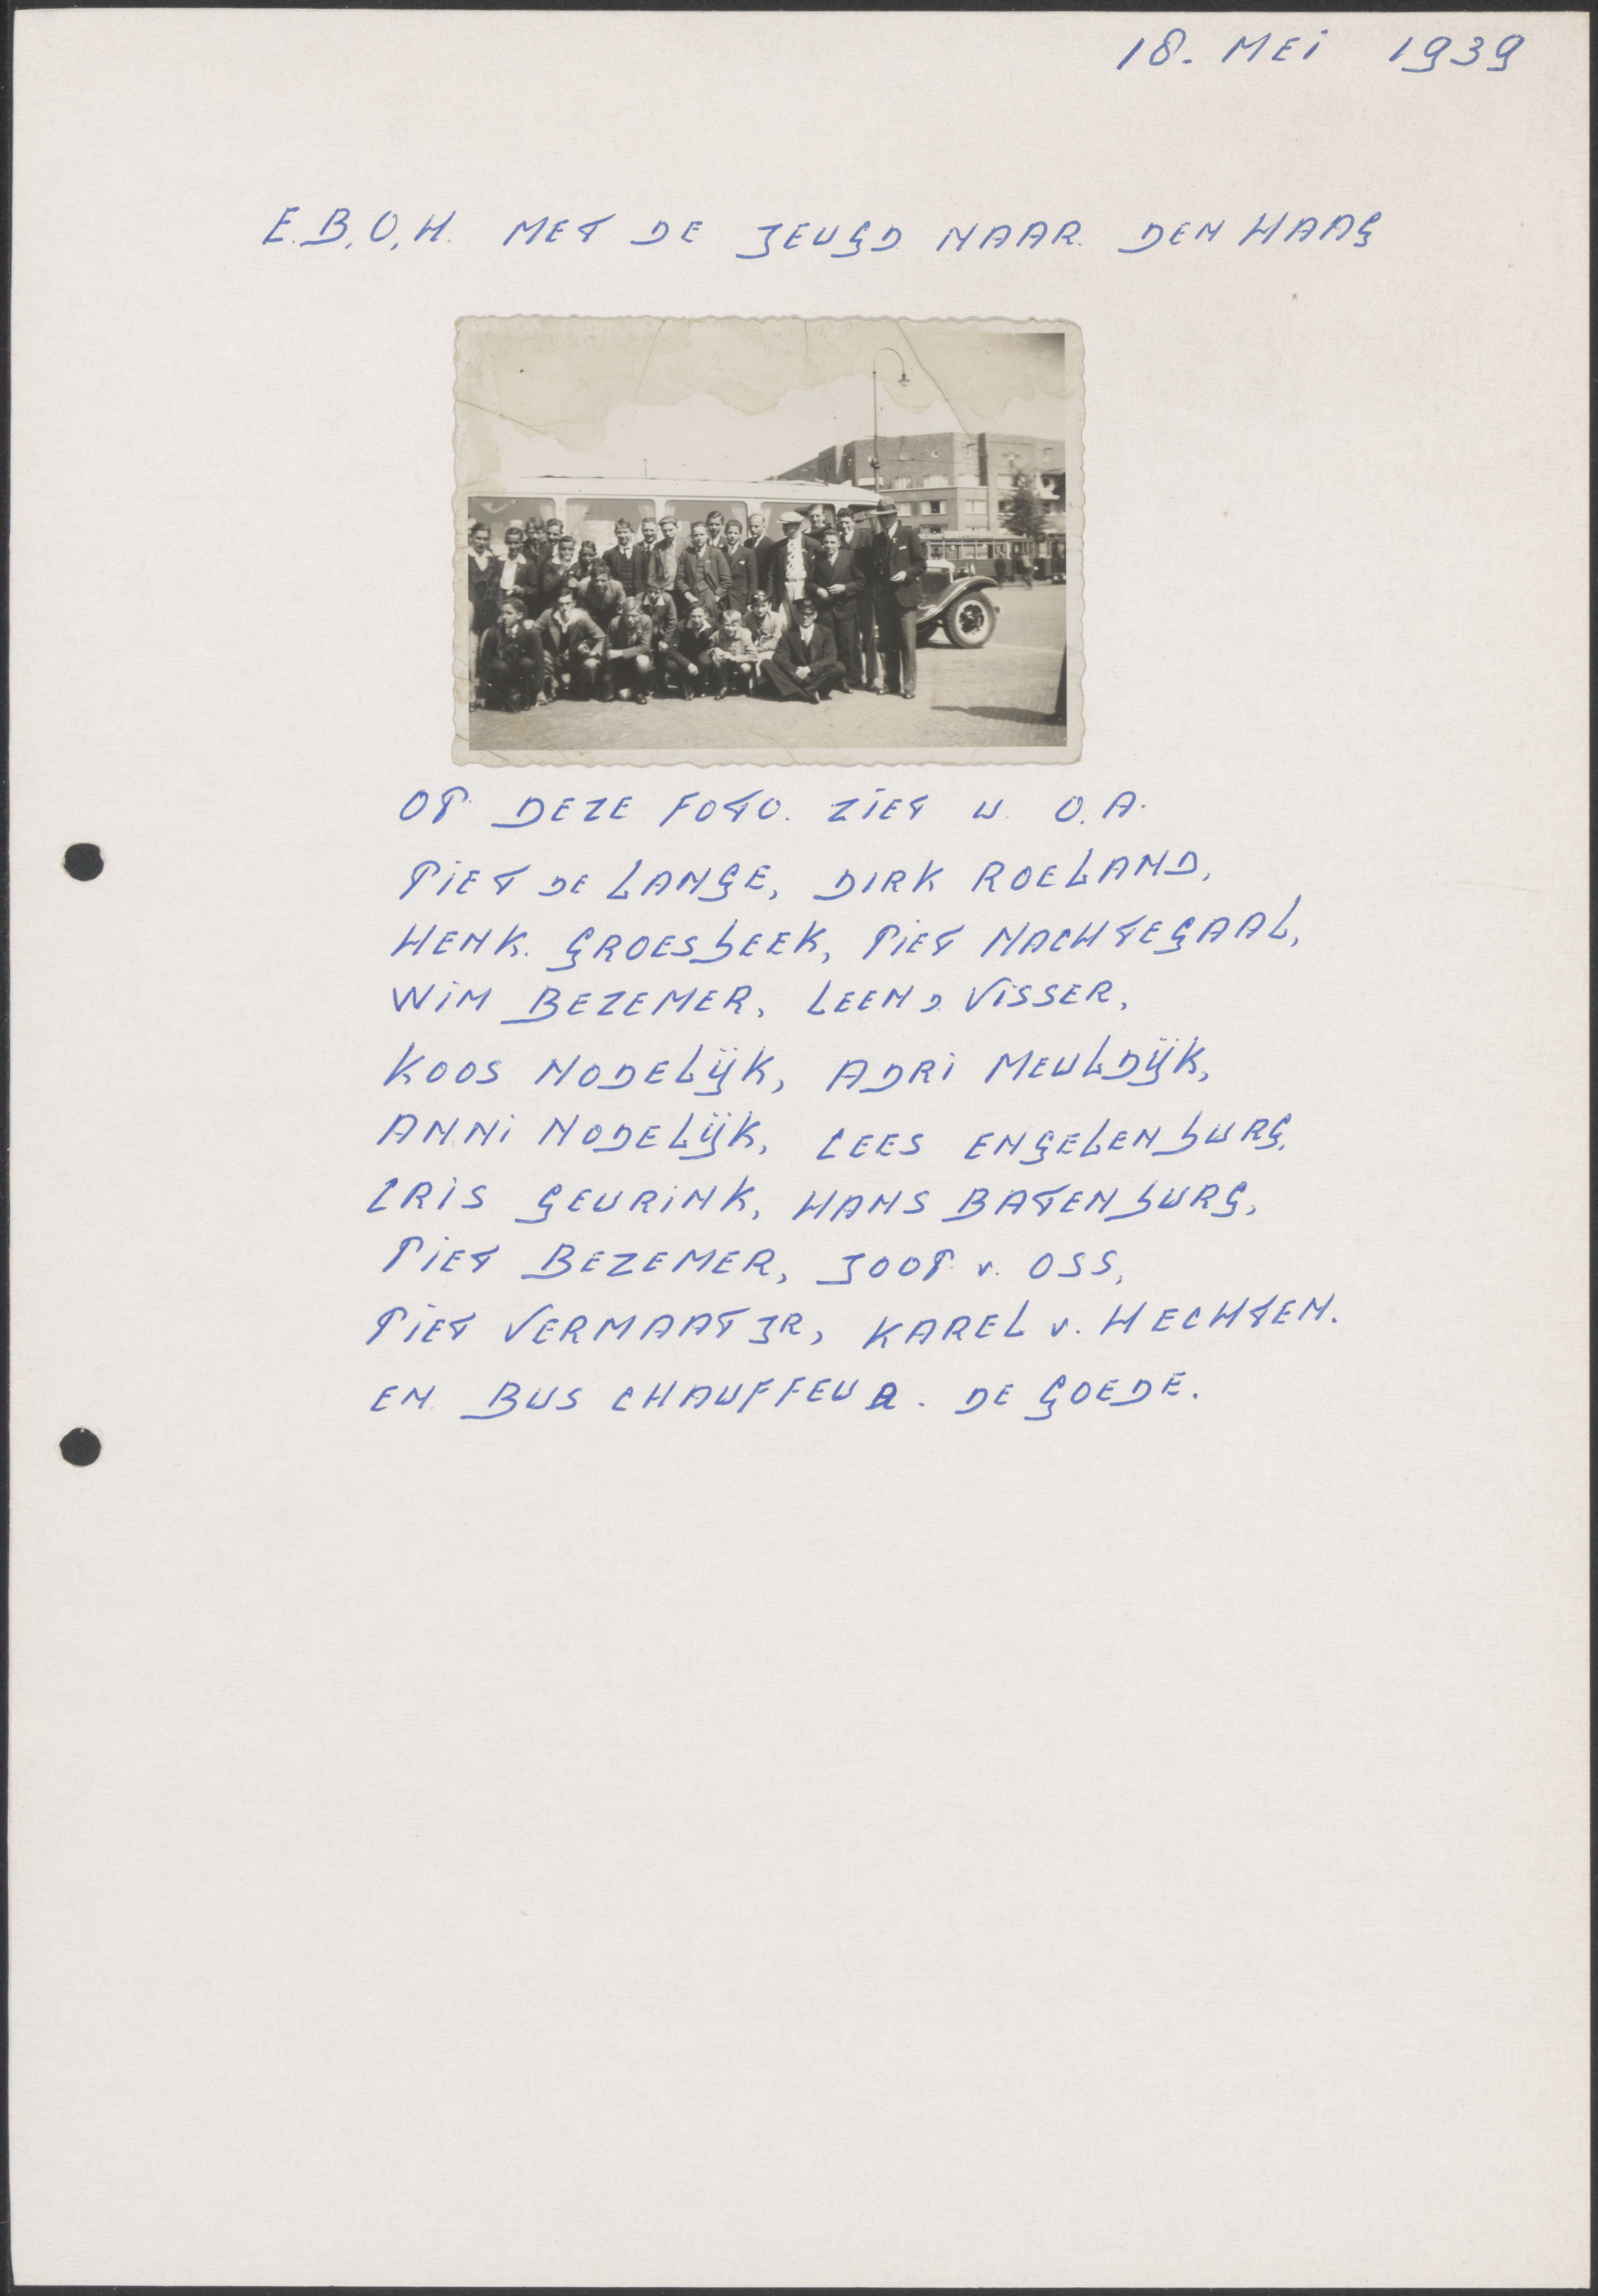 18. MEI 1939
E.B.O.H. MET DE JEUGD NAAR DEN HAAG
OP DEZE FOTO. ZIET U. O.A.
PIET DE LANGE, DIRK ROELAND,
HENK. GROESBEEK, PIET NACHTEGAAL,
WIM BEZEMER, LEEN D. VISSER,
KOOS NODELIJK, ADRI MEULDIJK,
ANNI NODELIJK, CEES ENGELENBURG,
CRIS GEURINK, HANS BATENBURG,
PIET BEZEMER, JOOP v. OSS,
PIET VERMAAT JR, KAREL v. HECHTEN.
EN BUS CHAUFFEUR. DE GOEDE.